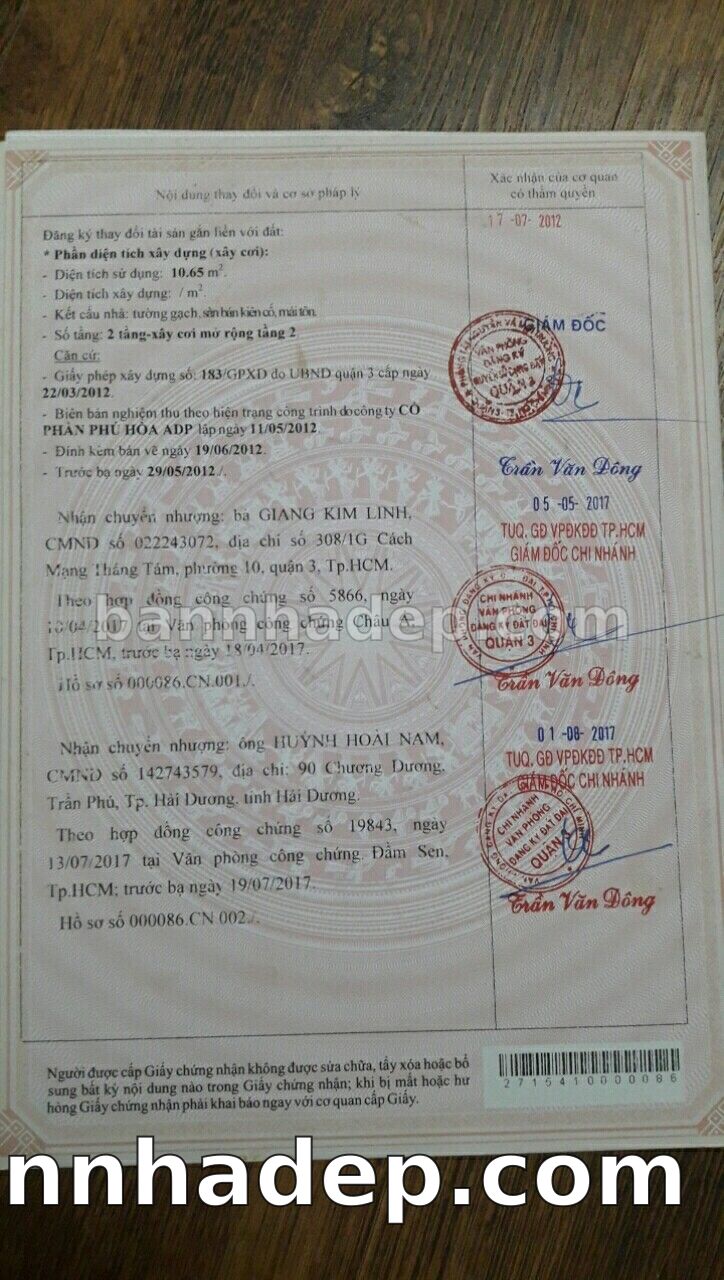 Nội dung thay đổi và cơ sở pháp lý
Xác nhận của cơ quan
có thẩm quyền
Đăng ký thay đổi tài sản gắn liền với đất:
* Phần diện tích xây dựng (xây cơi):
- Diện tích sử dụng: 10.65 m².
- Diện tích xây dựng: / m².
- Kết cấu nhà: tường gạch, sàn bán kiên cố, mái tôn.
- Số tầng: 2 tầng-xây cơi mở rộng tầng 2
Căn cứ:
- Giấy phép xây dựng số: 183/GPXD do UBND quận 3 cấp ngày
22/03/2012.
- Biên bản nghiệm thu theo hiện trạng công trình do công ty CỔ
PHẦN PHÚ HÒA ADP lập ngày 11/05/2012.
- Đính kèm bản vẽ ngày 19/06/2012.
- Trước bạ ngày 29/05/2012./.
17-07-2012
GIÁM ĐỐC
VĂN PHÒNG
ĐĂNG KÝ
QUYỀN SỬ DỤNG ĐẤT
QUẬN 3
Trần Văn Đông
Nhận chuyển nhượng: bà GIANG KIM LINH,
CMND số 022243072, địa chỉ số 308/1G Cách
Mạng Tháng Tám, phường 10, quận 3, Tp.HCM.
Theo hợp đồng công chứng số 5866, ngày
/04/2017 tại Văn phòng công chứng Châu Á,
Tp.HCM, trước bạ ngày 18/04/2017.
Hồ sơ số 000086.CN.001./.
05-05-2017
TUQ. GĐ VPĐKĐĐ TP.HCM
GIÁM ĐỐC CHI NHÁNH
CHI NHÁNH
VĂN PHÒNG
ĐĂNG KÝ ĐẤT ĐAI
QUẬN 3
Trần Văn Đông
bannhadep.com
Nhận chuyển nhượng: ông HUỲNH HOÀI NAM,
CMND số 142743579, địa chỉ: 90 Chương Dương,
Trần Phú, Tp. Hải Dương, tỉnh Hải Dương.
Theo hợp đồng công chứng số 19843, ngày
13/07/2017 tại Văn phòng công chứng Đầm Sen,
Tp.HCM; trước bạ ngày 19/07/2017.
Hồ sơ số 000086.CN.002./.
01-08-2017
TUQ. GĐ VPĐKĐĐ TP.HCM
GIÁM ĐỐC CHI NHÁNH
CHI NHÁNH
VĂN PHÒNG
ĐĂNG KÝ ĐẤT ĐAI
QUẬN 3
Trần Văn Đông
Người được cấp Giấy chứng nhận không được sửa chữa, tẩy xóa hoặc bổ
sung bất kỳ nội dung nào trong Giấy chứng nhận; khi bị mất hoặc hư
hỏng Giấy chứng nhận phải khai báo ngay với cơ quan cấp Giấy.
2715410000086
nnhadep.com